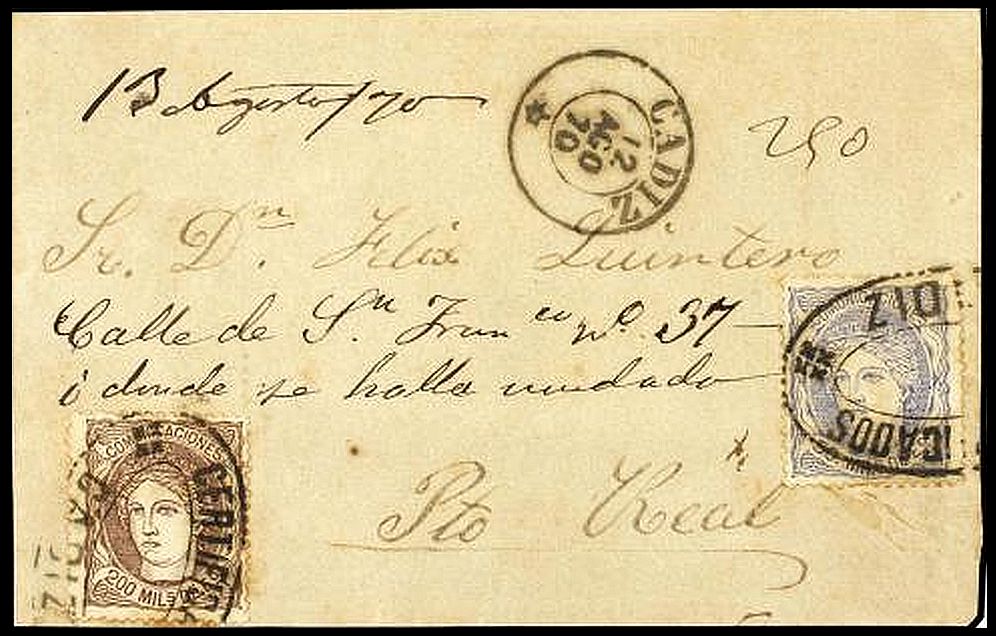 13 Agosto/70
CADIZ
12
AGO
70
250
Sr. Dn. Felix Quintero
Calle de Sn Franco nº 37
ó donde se halla mudado
DIZ
ICADOS
COMUNICACIONES
CERTIFICA
200 MILS DE
Pto Real